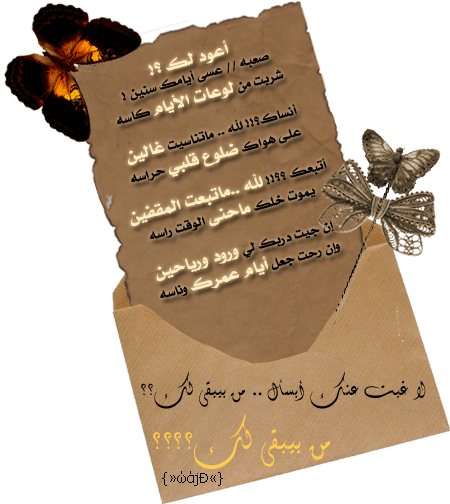 أعود لك ؟!
صعبه // عسى أيامك سنين !
شربت من لوعات الأيام كاسه
أنساك؟!! لله .. ماتناسيت غالين
على هواك ضلوع قلبي حراسه
أتبعك ؟؟!! لله ..ماتبعت المقفين
يموت خلك ماحنى الوقت راسه
إن جيت دربك لي ورود ورياحين
وإن رحت جعل أيام عمرك وناسه
لا غبت عنك أبسأل .. من بيبقى لك؟؟
من بيبقى لك؟؟؟؟
{»ώάjÐ«}